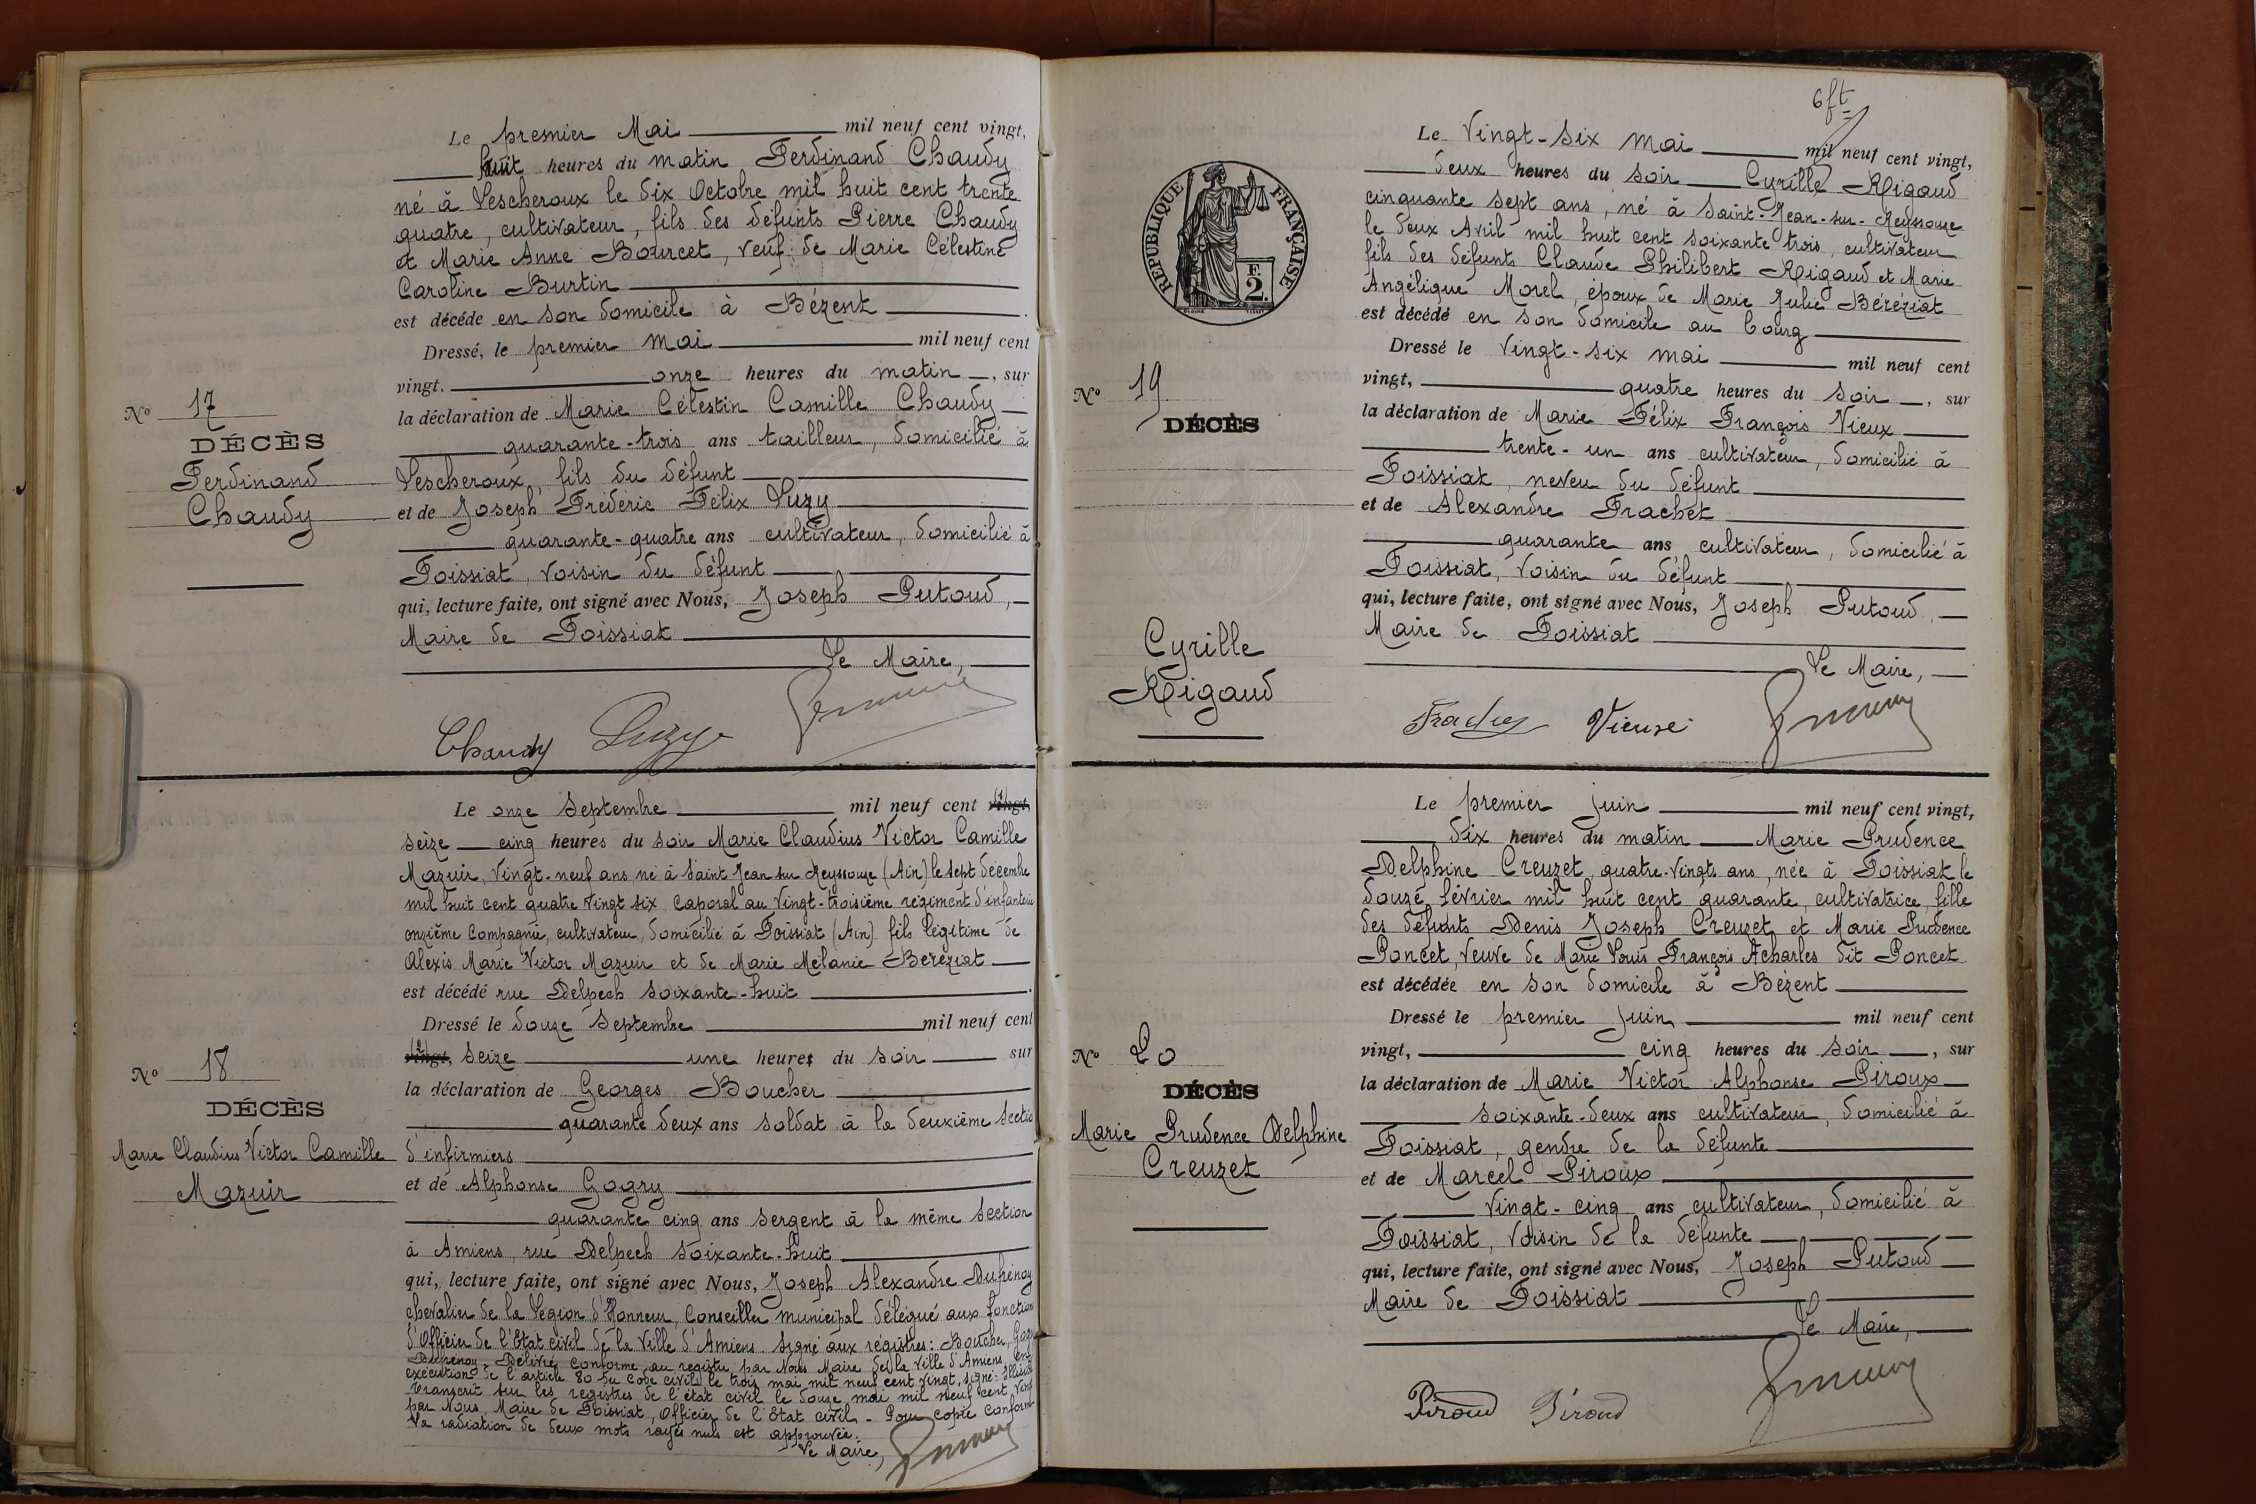 Le premier Mai mil neuf cent vingt,
huit heures du matin Ferdinand Chaudy
né à Lescheroux le dix Octobre mil huit cent trente
quatre, cultivateur, fils des défunts Pierre Chaudy
et Marie Anne Bourcet, veuf de Marie Célestine
Caroline Burtin
est décédé en son domicile à Bézent
Dressé, le premier mai mil neuf cent
vingt. onze heures du matin, sur
la déclaration de Marie Célestin Camille Chaudy
quarante-trois ans tailleur, domicilié à
Lescheroux, fils du défunt
et de Joseph Frédéric Félix Luzy
quarante-quatre ans cultivateur, domicilié à
Foissiat, voisin du défunt
qui, lecture faite, ont signé avec Nous, Joseph Putoud,
Maire de Foissiat
Le Maire,
Chaudy Luzy
No 17
DÉCÈS
Ferdinand
Chaudy
Le onze Septembre mil neuf cent vingt,
seize cinq heures du soir Marie Claudius Victor Camille
Mazuir, vingt-neuf ans, né à Saint Jean sur Reyssouze (Ain) le sept décembre
mil huit cent quatre vingt six caporal au vingt-troisième régiment d'infanterie
onzième compagnie, cultivateur, domicilié à Foissiat (Ain) fils légitime de
Alexis Marie Victor Mazuir et de Marie Mélanie Béréziat
est décédé rue Delpech soixante-huit
Dressé le douze Septembre mil neuf cent
vingt, seize une heures du soir sur
la déclaration de Georges Boucher
quarante deux ans soldat à la deuxième Sectio
d'infirmiers
et de Alphonse Gogry
quarante cinq ans sergent à la même section
à Amiens, rue Delpech soixante-huit
qui, lecture faite, ont signé avec Nous, Joseph Alexandre Dufrénoy
chevalier de la Légion d'Honneur, Conseiller municipal délégué aux fonction
d'Officier de l'Etat civil de la Ville d'Amiens. Signé aux régistres: Boucher, Gogry
Dufrénoy. Délivré conforme au registre par Nous Maire de la Ville d'Amiens, en
exécution de l'article 80 du code civil le trois mai mil neuf cent vingt, signé:
Transcrit sur les registres de l'état civil le douze mai mil neuf cent vingt
par Nous, Maire de Foissiat, Officier de l'Etat civil. Pour copie conforme
La radiation de deux mots rayés nuls est approuvée.
Le Maire,
No 18
DÉCÈS
Marie Claudius Victor Camille
Mazuir
6 ft
RÉPUBLIQUE FRANÇAISE
F.
2.
Le Vingt-six mai mil neuf cent vingt,
deux heures du soir Cyrille Rigaud
cinquante sept ans, né à Saint-Jean-sur-Reyssouze
le deux Avril mil huit cent soixante trois, cultivateur
fils des défunts Claude Philibert Rigaud et Marie
Angélique Morel, époux de Marie Julie Béréziat
est décédé en son domicile au bourg
Dressé le vingt-six mai mil neuf cent
vingt, quatre heures du soir, sur
la déclaration de Marie Félix François Vieux
trente-un ans cultivateur, domicilié à
Foissiat, neveu du défunt
et de Alexandre Frachet
quarante ans cultivateur, domicilié à
Foissiat, voisin du défunt
qui, lecture faite, ont signé avec Nous, Joseph Putoud,
Maire de Foissiat
Le Maire,
No 19
DÉCÈS
Cyrille
Rigaud
Le premier juin mil neuf cent vingt,
dix heures du matin Marie Prudence
Delphine Creuzet, quatre-vingts ans, née à Foissiat le
douze février mil huit cent quarante, cultivatrice, fille
des défunts Denis Joseph Creuzet et Marie Prudence
Poncet, veuve de Marie Louis François Acharles dit Poncet
est décédée en son domicile à Bézent
Dressé le premier juin mil neuf cent
vingt, cinq heures du soir, sur
la déclaration de Marie Victor Alphonse Piroux
soixante-deux ans cultivateur, domicilié à
Foissiat, gendre de la défunte
et de Marcel Piroux
vingt-cinq ans cultivateur, domicilié à
Foissiat, voisin de la défunte
qui, lecture faite, ont signé avec Nous, Joseph Putoud
Maire de Foissiat
Le Maire,
No 20
DÉCÈS
Marie Prudence Delphine
Creuzet